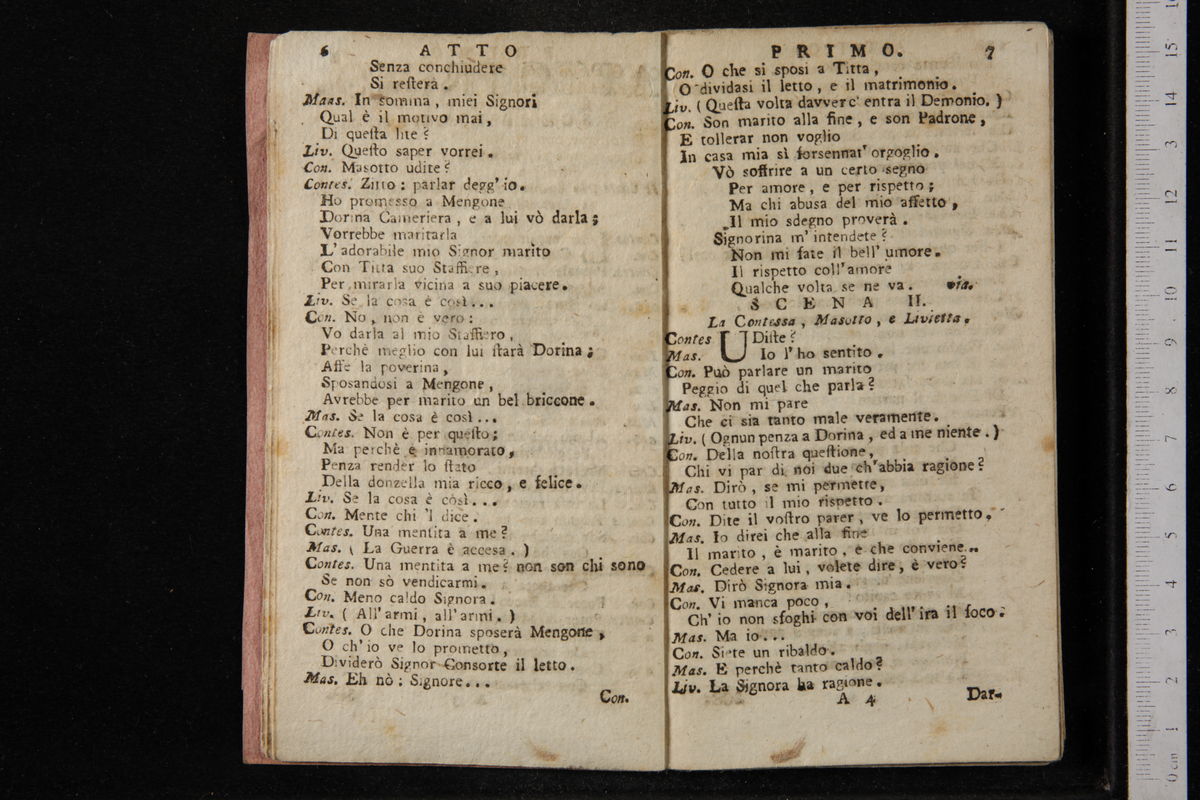 6 ATTO
Senza conchiudere
Si resterà.
Maas. In somma, miei Signori
Qual è il motivo mai,
Di questa lite?
Liv. Questo saper vorrei.
Con. Masotto udite?
Contes. Zitto: parlar degg' io.
Ho promesso a Mengone
Dorina Cameriera, e a lui vò darla;
Vorrebbe maritarla
L' adorabile mio Signor marito
Con Titta suo Staffiere,
Per mirarla vicina a suo piacere.
Liv. Se la cosa è così...
Con. No, non è vero:
Vo darla al mio Staffiero,
Perchè meglio con lui starà Dorina;
Affè la poverina,
Sposandosi a Mengone,
Avrebbe per marito un bel briccone.
Mas. Se la cosa è così...
Contes. Non è per questo;
Ma perchè è innamorato,
Penza render lo stato
Della donzella mia ricco, e felice.
Liv. Se la cosa è così...
Con. Mente chi 'l dice.
Contes. Una mentita a me?
Mas. ( La Guerra è accesa. )
Contes. Una mentita a me? non son chi sono
Se non sò vendicarmi.
Con. Meno caldo Signora.
Liv. ( All' armi, all' armi. )
Contes. O che Dorina sposerà Mengone,
O ch' io ve lo prometto,
Dividerò Signor Consorte il letto.
Mas. Eh nò: Signore...
Con.
PRIMO. 7
Con. O che si sposi a Titta,
O dividasi il letto, e il matrimonio.
Liv. ( Questa volta davver c' entra il Demonio. )
Con. Son marito alla fine, e son Padrone,
E tollerar non voglio
In casa mia sì forsennat' orgoglio.
Vò soffrire a un certo segno
Per amore, e per rispetto;
Ma chi abusa del mio affetto,
Il mio sdegno proverà.
Signorina m' intendete?
Non mi fate il bell' umore.
Il rispetto coll' amore
Qualche volta se ne va. via.
SCENA II.
La Contessa, Masotto, e Livietta.
Contes UDiste?
Mas. Io l' ho sentito.
Con. Può parlare un marito
Peggio di quel che parla?
Mas. Non mi pare
Che ci sia tanto male veramente.
Liv. ( Ognun penza a Dorina, ed a me niente. )
Con. Della nostra questione,
Chi vi par di noi due ch' abbia ragione?
Mas. Dirò, se mi permette,
Con tutto il mio rispetto.
Con. Dite il vostro parer, ve lo permetto.
Mas. Io direi che alla fine
Il marito, è marito, e che conviene...
Con. Cedere a lui, volete dire, è vero?
Mas. Dirò Signora mia.
Con. Vi manca poco,
Ch' io non sfoghi con voi dell' ira il foco.
Mas. Ma io...
Con. Siete un ribaldo.
Mas. E perchè tanto caldo?
Liv. La Signora ha ragione.
A 4 Dar-